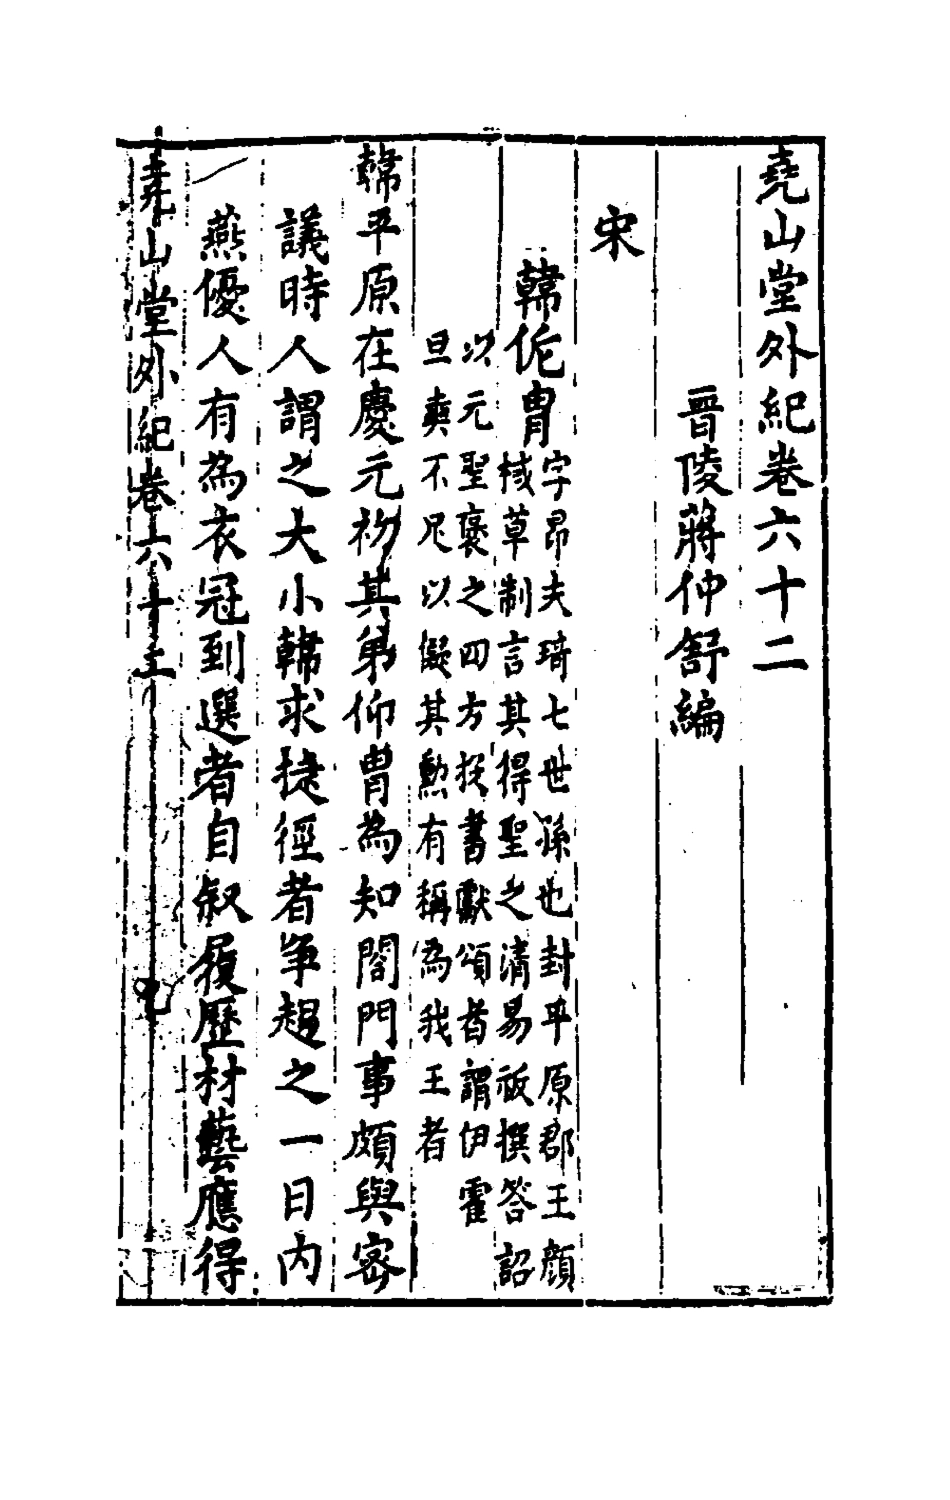 堯山堂外紀卷六十二
晉陵蔣仲舒編
宋
韓侂胄
字昂夫琦七世孫也封平原郡王顔
棫草制言其得聖之清易祓撰答詔
以元聖褒之四方投書獻頌者謂伊霍
旦奭不足以儗其勳有稱為我王者
韓平原在慶元初其弟仰胄為知閤門事頗與密
議時人謂之大小韓求捷徑者争趨之一日内
燕優人有為衣冠到選者自叙履歷材藝應得
堯山堂外紀卷六十